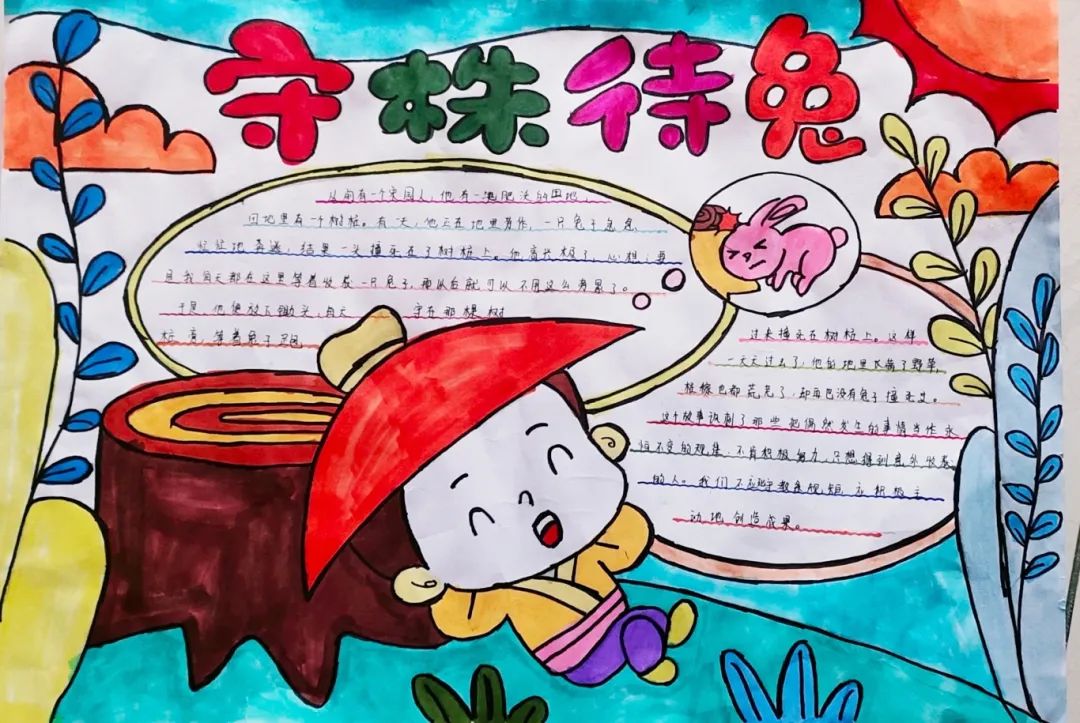 守株待兔
从前有一个宋国人,他有一块肥沃的田地,
田地里有一个树桩。有一天,他正在地里劳作,一只兔子急急
忙忙地奔逃,结果一头撞死在了树桩上。他高兴极了,心想:要
是我每天都在这里等着收获一只兔子,那以后就可以不用这么劳累了。
于是,他便放下锄头,每天 守在那棵树
桩旁等着兔子
过来撞死在树桩上。这样
一天天过去了,他的地里长满了野草,
庄稼也都荒死了,却再也没有兔子撞死过。
这个故事讽刺了那些把偶然发生的事情当作永
恒不变的现象,不肯积极努力,只想得到意外收获
的人。我们不应 积极主
动地创造成果。